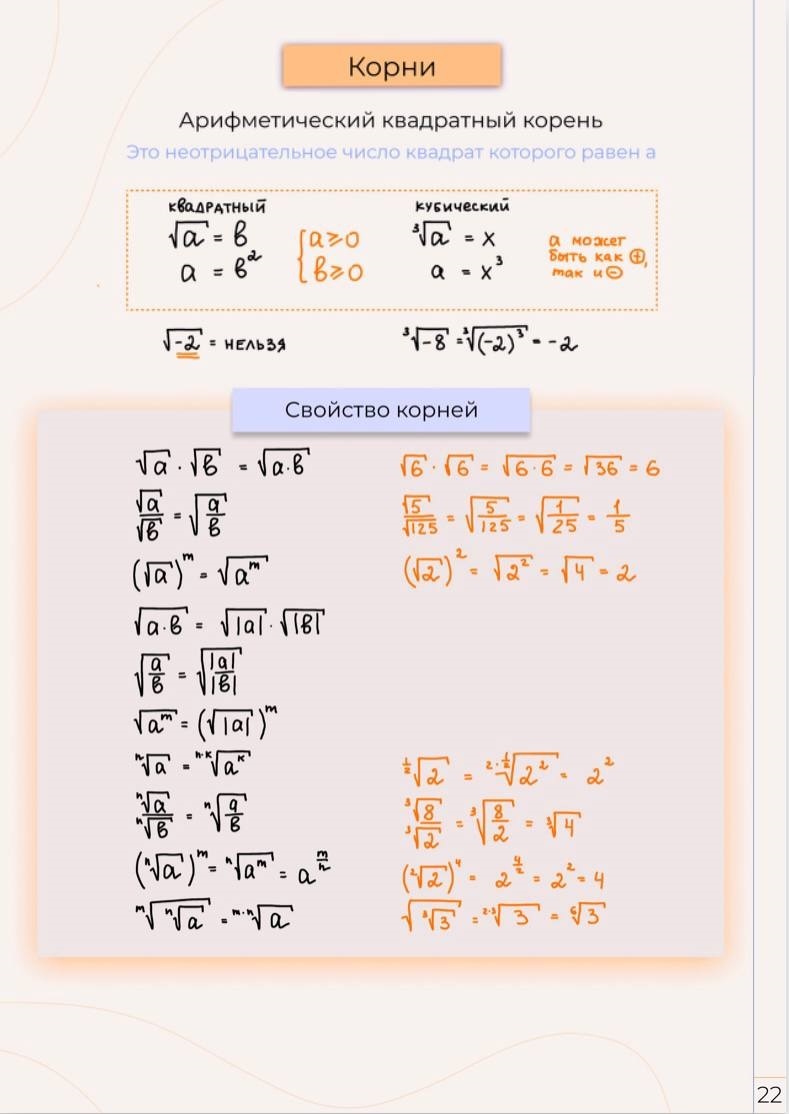 Корни
Арифметический квадратный корень
Это неотрицательное число квадрат которого равен а
квадратный
√a = b
a = b²
{a ≥ 0
{b ≥ 0
кубический
³√a = x
a = x³
а может
быть как ⊕,
так и ⊖
√-2 = нельзя
³√-8 = ³√(-2)³ = -2
Свойство корней
√a · √b = √a·b
√6 · √6 = √6·6 = √36 = 6
√a/√b = √(a/b)
√5/√125 = √(5/125) = √(1/25) = 1/5
(√a)ᵐ = √aᵐ
(√2)² = √2² = √4 = 2
√a·b = √|a| · √|b|
√(a/b) = √(|a|/|b|)
√aᵐ = (√|a|)ᵐ
ⁿ√a = ⁿ·ᵏ√aᵏ
^(1/2)√2 = ^(2·1/2)√2² = 2²
ⁿ√a/ⁿ√b = ⁿ√(a/b)
³√8/³√2 = ³√(8/2) = ³√4
(ⁿ√a)ᵐ = ⁿ√aᵐ = a^(m/n)
(²√2)⁴ = 2^(4/2) = 2² = 4
ᵐ√ⁿ√a = ᵐ·ⁿ√a
√³√3 = ²·³√3 = ⁶√3
22